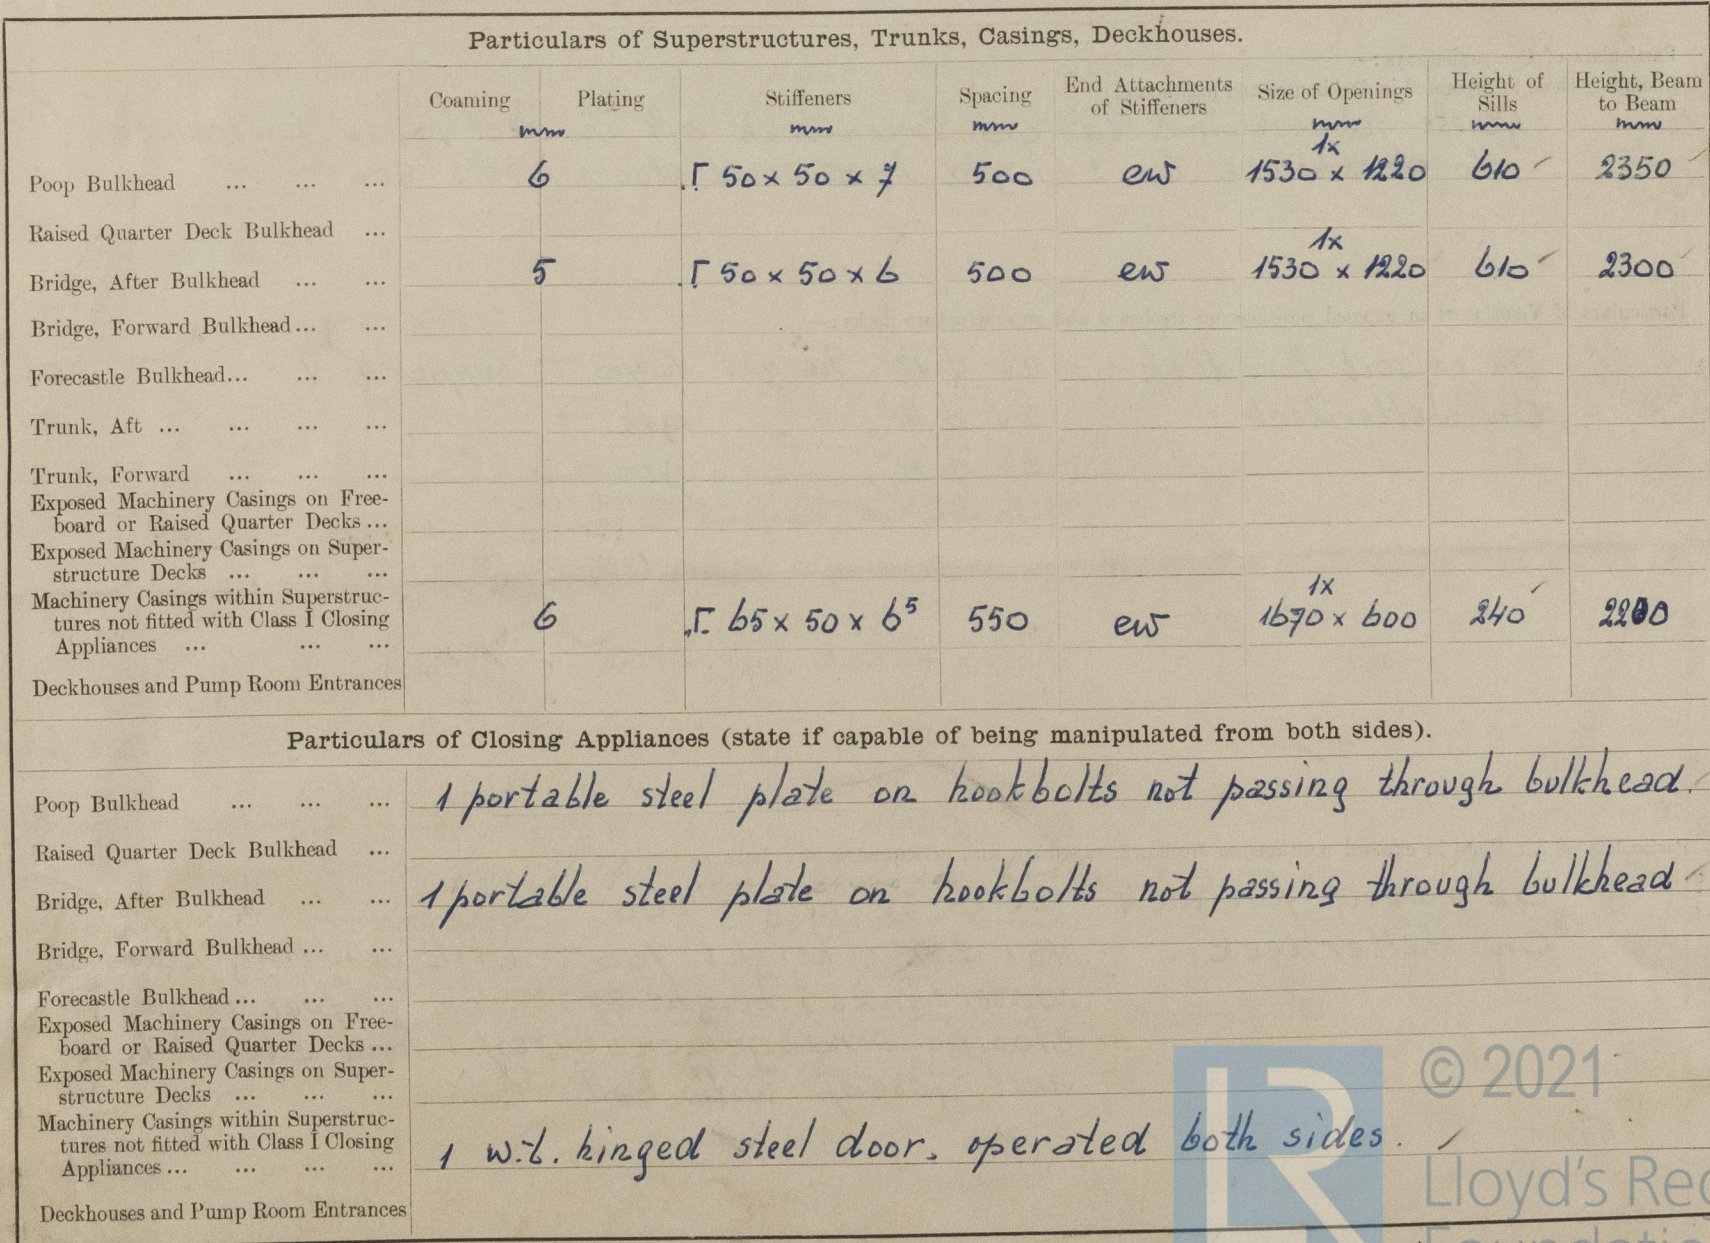 Particulars of Superstructures, Trunks, Casings, Deckhouses.
Coaming Plating Stiffeners Spacing End Attachments of Stiffeners Size of Openings Height of Sills Height, Beam to Beam
mm mm mm mm mm mm
1x
Poop Bulkhead ... ... ... 6 Γ 50 x 50 x 7 500 ew 1530 x 1220 610 2350
Raised Quarter Deck Bulkhead ...
1x
Bridge, After Bulkhead ... ... 5 Γ 50 x 50 x 6 500 ew 1530 x 1220 610 2300
Bridge, Forward Bulkhead... ...
Forecastle Bulkhead... ... ...
Trunk, Aft ... ... ... ...
Trunk, Forward ... ... ...
Exposed Machinery Casings on Free-
board or Raised Quarter Decks ...
Exposed Machinery Casings on Super-
structure Decks ... ... ...
1x
Machinery Casings within Superstruc-
tures not fitted with Class I Closing 6 Γ 65 x 50 x 6⁵ 550 ew 1670 x 600 240
Appliances ... ... ...
Deckhouses and Pump Room Entrances
Particulars of Closing Appliances (state if capable of being manipulated from both sides).
Poop Bulkhead ... ... ... 1 portable steel plate on hookbolts not passing through bulkhead.
Raised Quarter Deck Bulkhead ...
Bridge, After Bulkhead ... ... 1 portable steel plate on hookbolts not passing through bulkhead
Bridge, Forward Bulkhead ... ...
Forecastle Bulkhead ... ... ...
Exposed Machinery Casings on Free-
board or Raised Quarter Decks ...
Exposed Machinery Casings on Super-
structure Decks ... ... ...
Machinery Casings within Superstruc-
tures not fitted with Class I Closing
Appliances ... ... ... ... 1 w.t. hinged steel door, operated both sides.
Deckhouses and Pump Room Entrances
© 2021
Lloyd's Reg
Foundatio